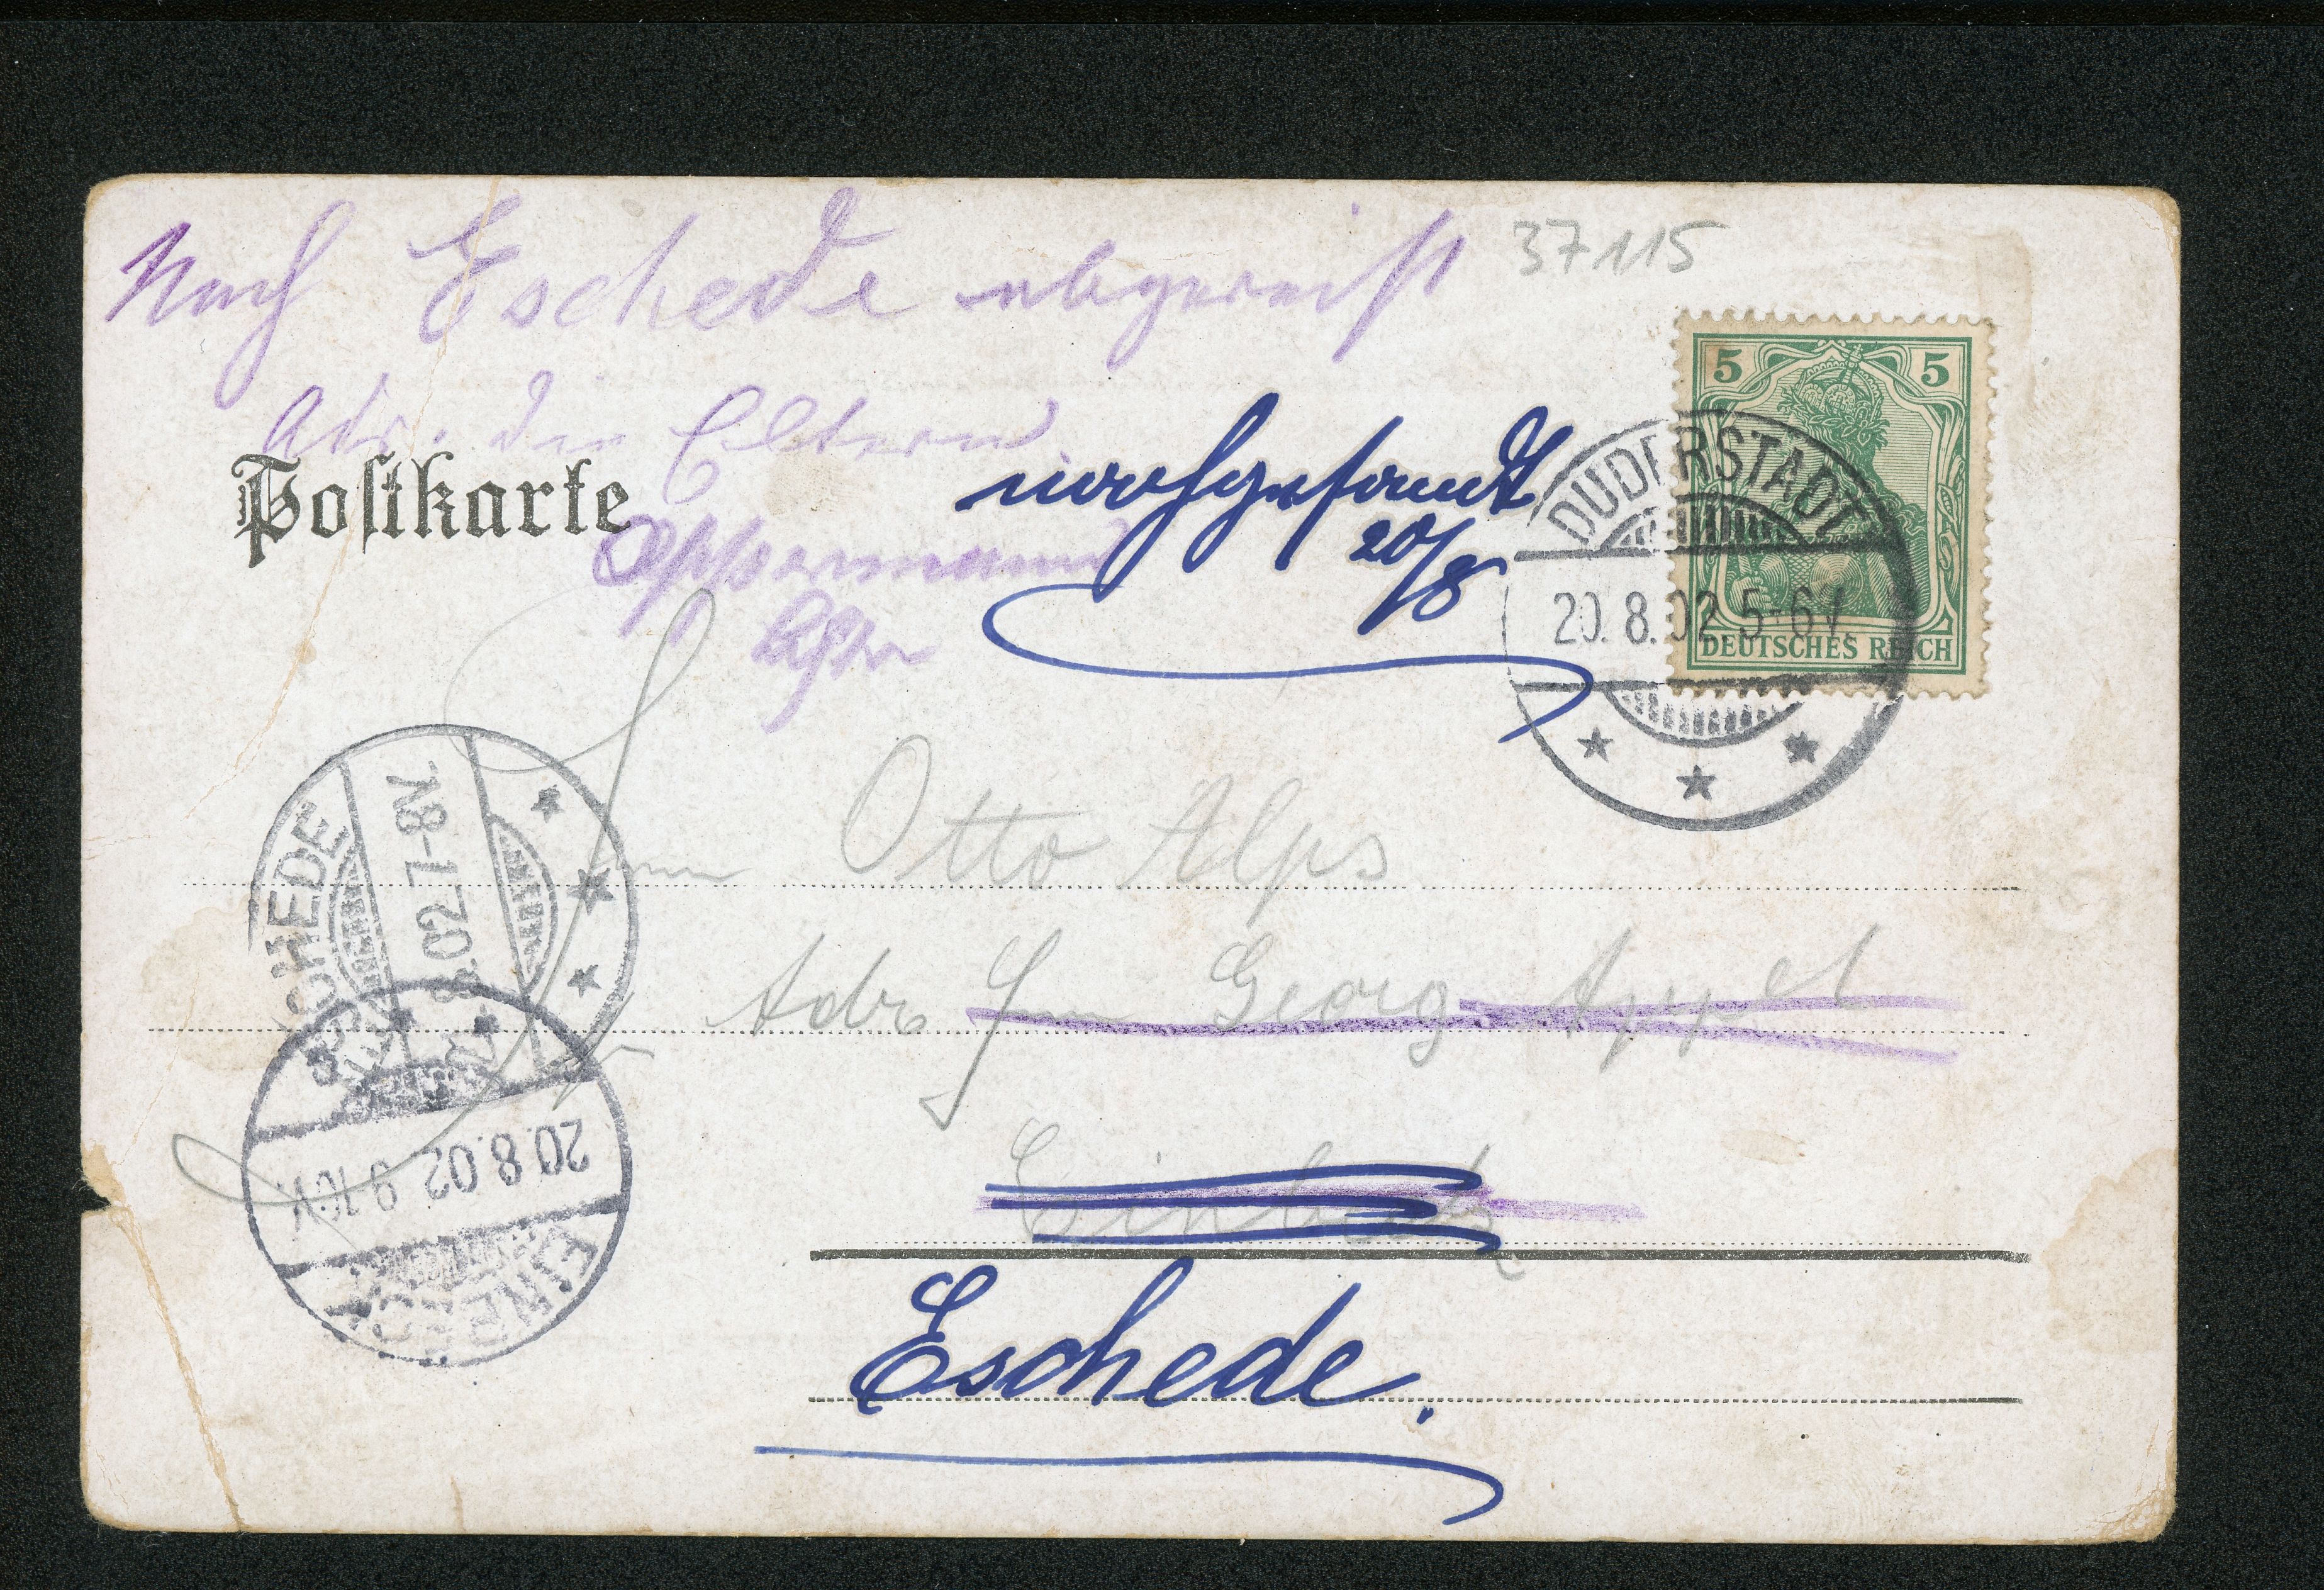 37115
Nach Eschede abgereist
Adr. den Eltern
Postkarte
nachgesandt
20/8
Oppermann
5 5
DEUTSCHES REICH
DUDERSTADT
20.8.02.5-6V.
ESCHEDE
8.02.7-8V.
Otto Alps
Adr Herrn Georg Appel
Einbeck
EINBECK
20.8.02 9-10V.
Eschede.